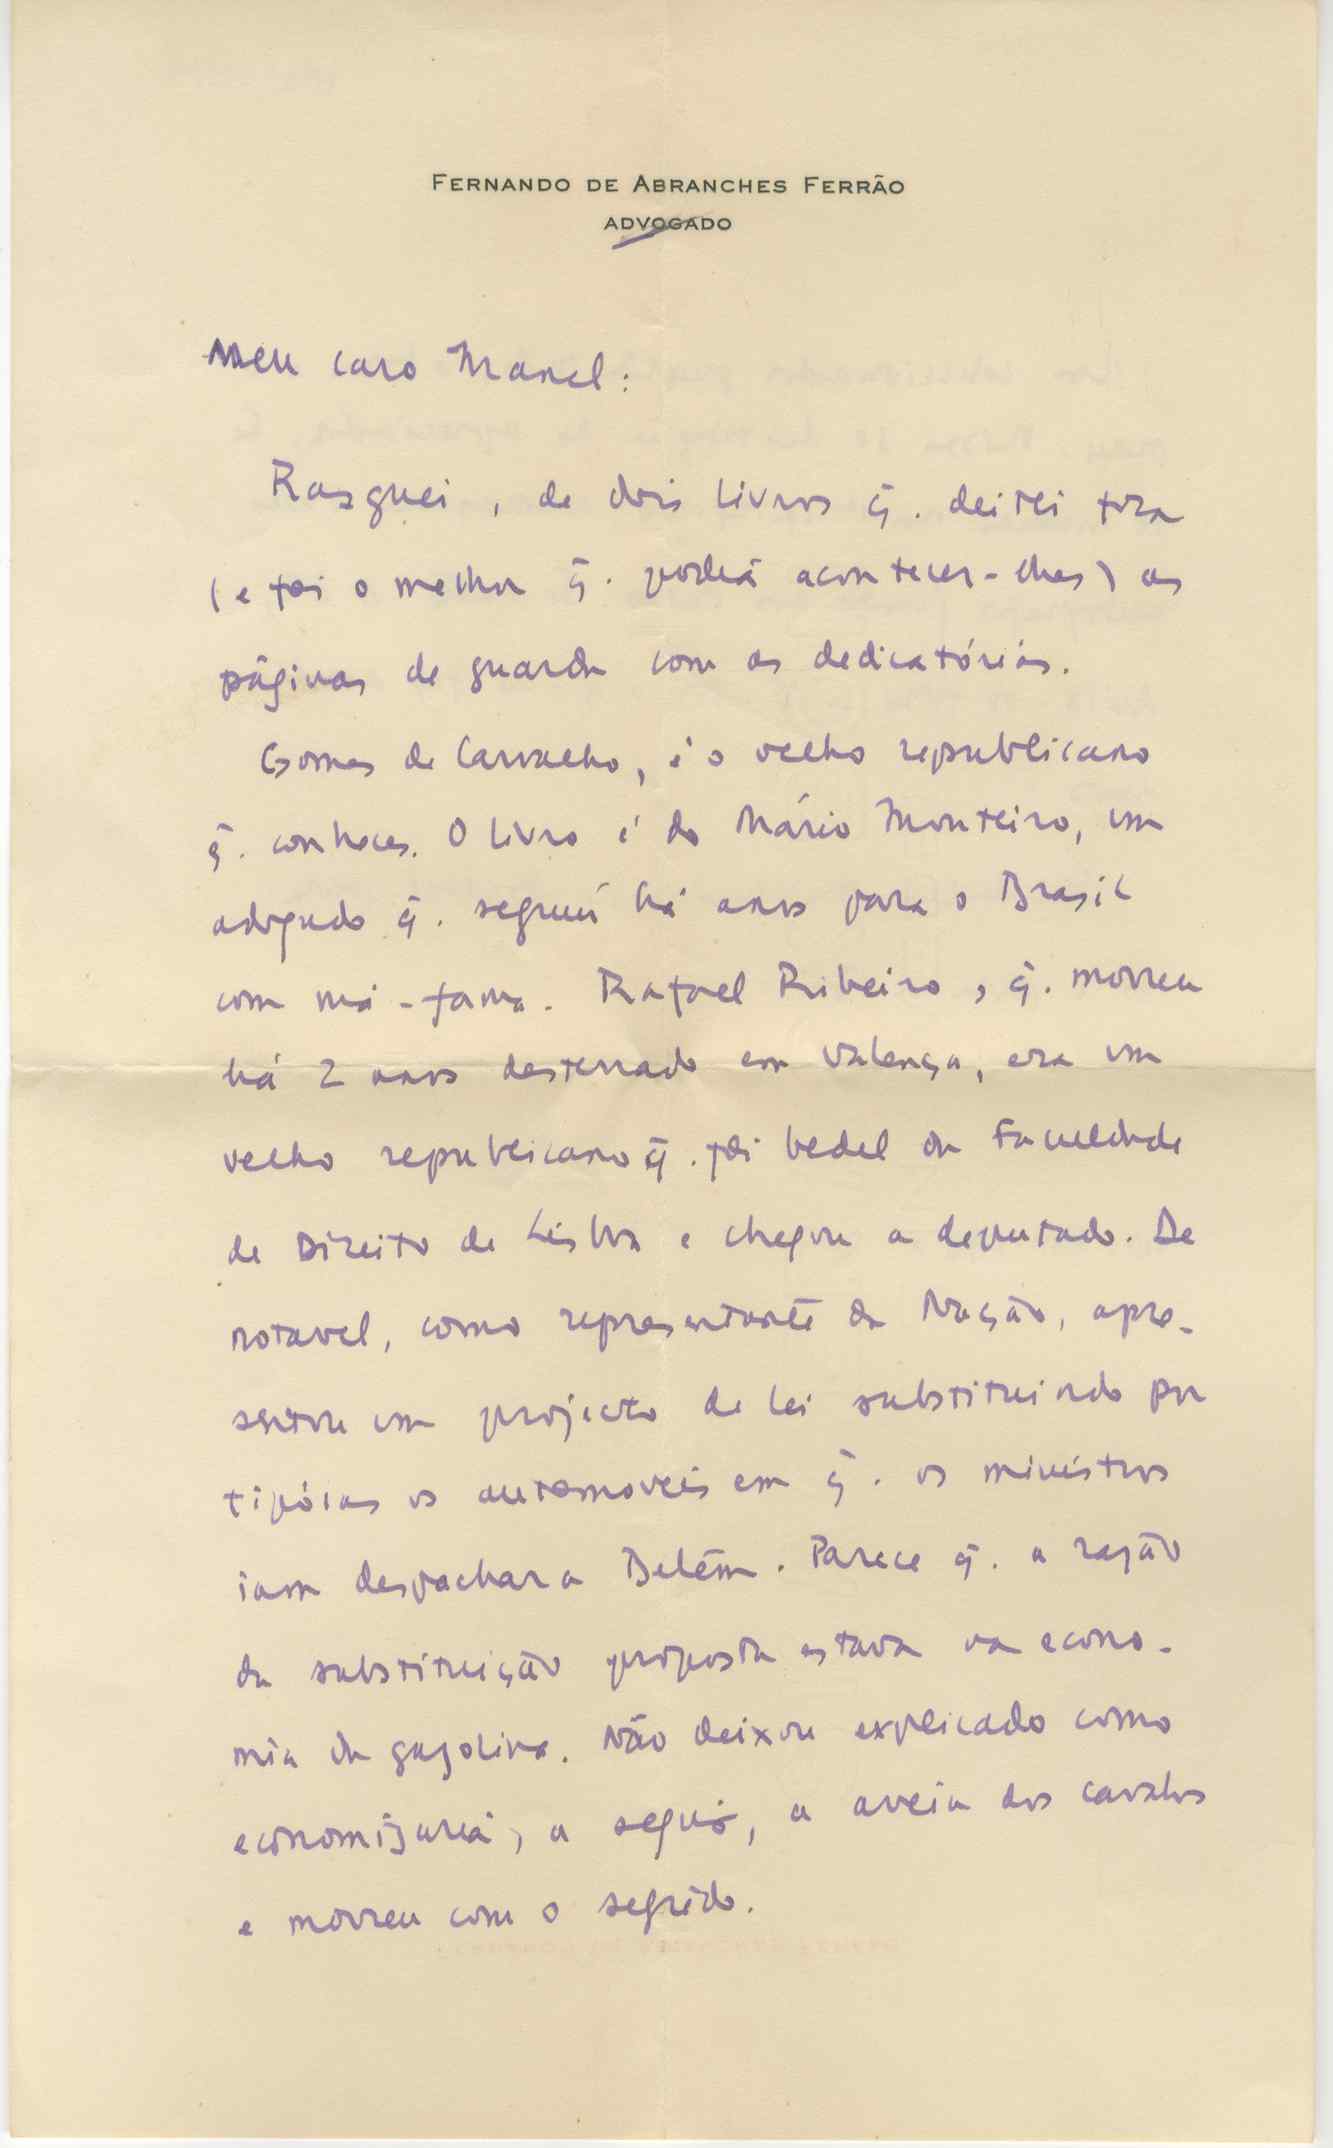 FERNANDO DE ABRANCHES FERRÃO
ADVOGADO
Meu caro Manel:
Rasguei, de dois livros q̃. deitei fora
(e foi o melhor q̃. podia acontecer-lhes) as
páginas de guarda com as dedicatórias.
Gomes de Carvalho, é o velho republicano
q̃. conheces. O livro é do Mário Monteiro, um
advogado q̃. seguiu há anos para o Brasil
com má-fama. Rafael Ribeiro, q̃. morreu
há 2 anos desterrado em Valença, era um
velho republicano q̃. foi bedel da Faculdade
de Direito de Lisboa e chegou a deputado. De
notavel, como representante da Nação, apre-
sentou um projecto de lei substituindo por
tipóias os automoveis em q̃. os ministros
iam despachar a Belém. Parece q̃. a razão
da substituição proposta estava na econo-
mia da gazolina. Não deixou explicado como
economizaria, a seguir, a aveia dos cavalos
e morreu com o segrêdo.